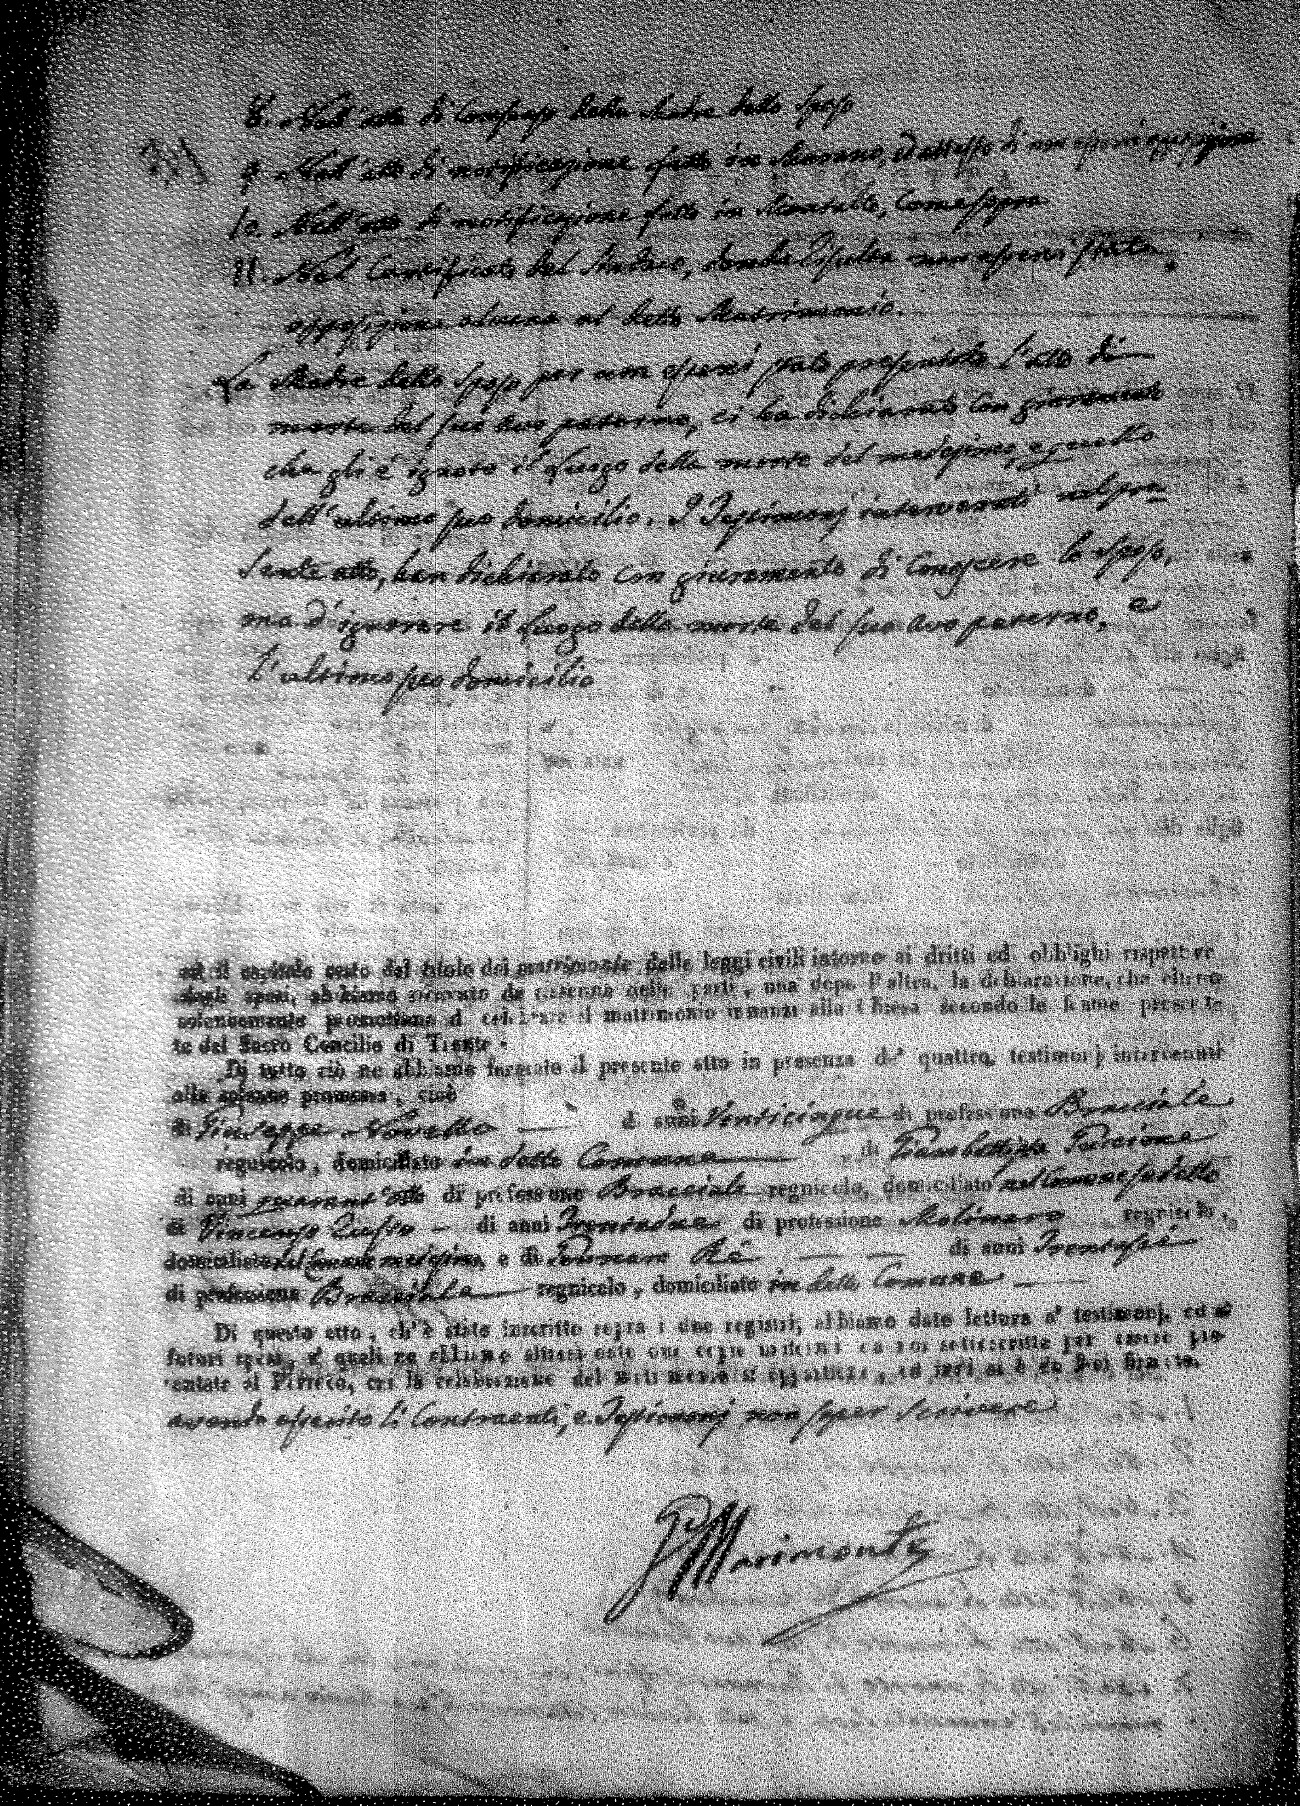 8. Nell'atto di Consenso della Madre dello Sposo
9. Nell'atto di notificazione fatto in Marano, ed attesto di non esservi opposizione
10. Nell'atto di notificazione fatto in, Come sopra
11. Nel Certificato del Sindaco, donde risulta non esservi stata
opposizione alcuna al detto Matrimonio.
La Madre dello Sposo per non esservi stato presentato l'atto di
morte del suo avo paterno, ci ha dichiarato con giuramento
che gli è ignoto il luogo della morte del medesimo, e quello
dell'ultimo suo domicilio. I Testimonj intervenuti nel pre=
sente atto, han dichiarato con giuramento di conoscere lo sposo,
ma d'ignorare il luogo della morte del suo avo paterno, e
l'ultimo suo domicilio
ed il capitolo sesto del titolo del matrimonio delle leggi civili intorno ai dritti ed obblighi rispettivi
degli sposi, abbiamo ricevuto da ciascuna delle parti, una dopo l'altra, la dichiarazione, che elleno
solennemente promettono di celebrare il matrimonio innanzi alla Chiesa secondo le forme prescrit-
te dal Sacro Concilio di Trento.
Di tutto ciò ne abbiamo formato il presente atto in presenza de' quattro testimonj intervenuti
alla solenne promessa, cioè
di Giuseppe Novello di anni venticinque di professione Bracciale
regnicolo, domiciliato in detto Comune di Giambattista
di anni quarant'otto di professione Bracciale regnicolo, domiciliato nel Comune sudetto
di Vincenzo di anni Trentadue di professione Molinaro regnicolo,
domiciliato nel Comune medesimo, e di Romano Rè di anni Trentasei
di professione Bracciale regnicolo, domiciliato in detto Comune
Di questo atto, ch'è stato inscritto sopra i due registri, abbiamo dato lettura a' testimonj, ed a'
futuri sposi, a' quali ne abbiamo altresì date due copie uniformi da noi sottoscritte per essere pre-
sentate al Parroco, cui la celebrazione del matrimonio si appartiene, ed indi si è da Noi firmato,
avendo asserito li Contraenti, e Testimonj non saper scrivere
Marimonte